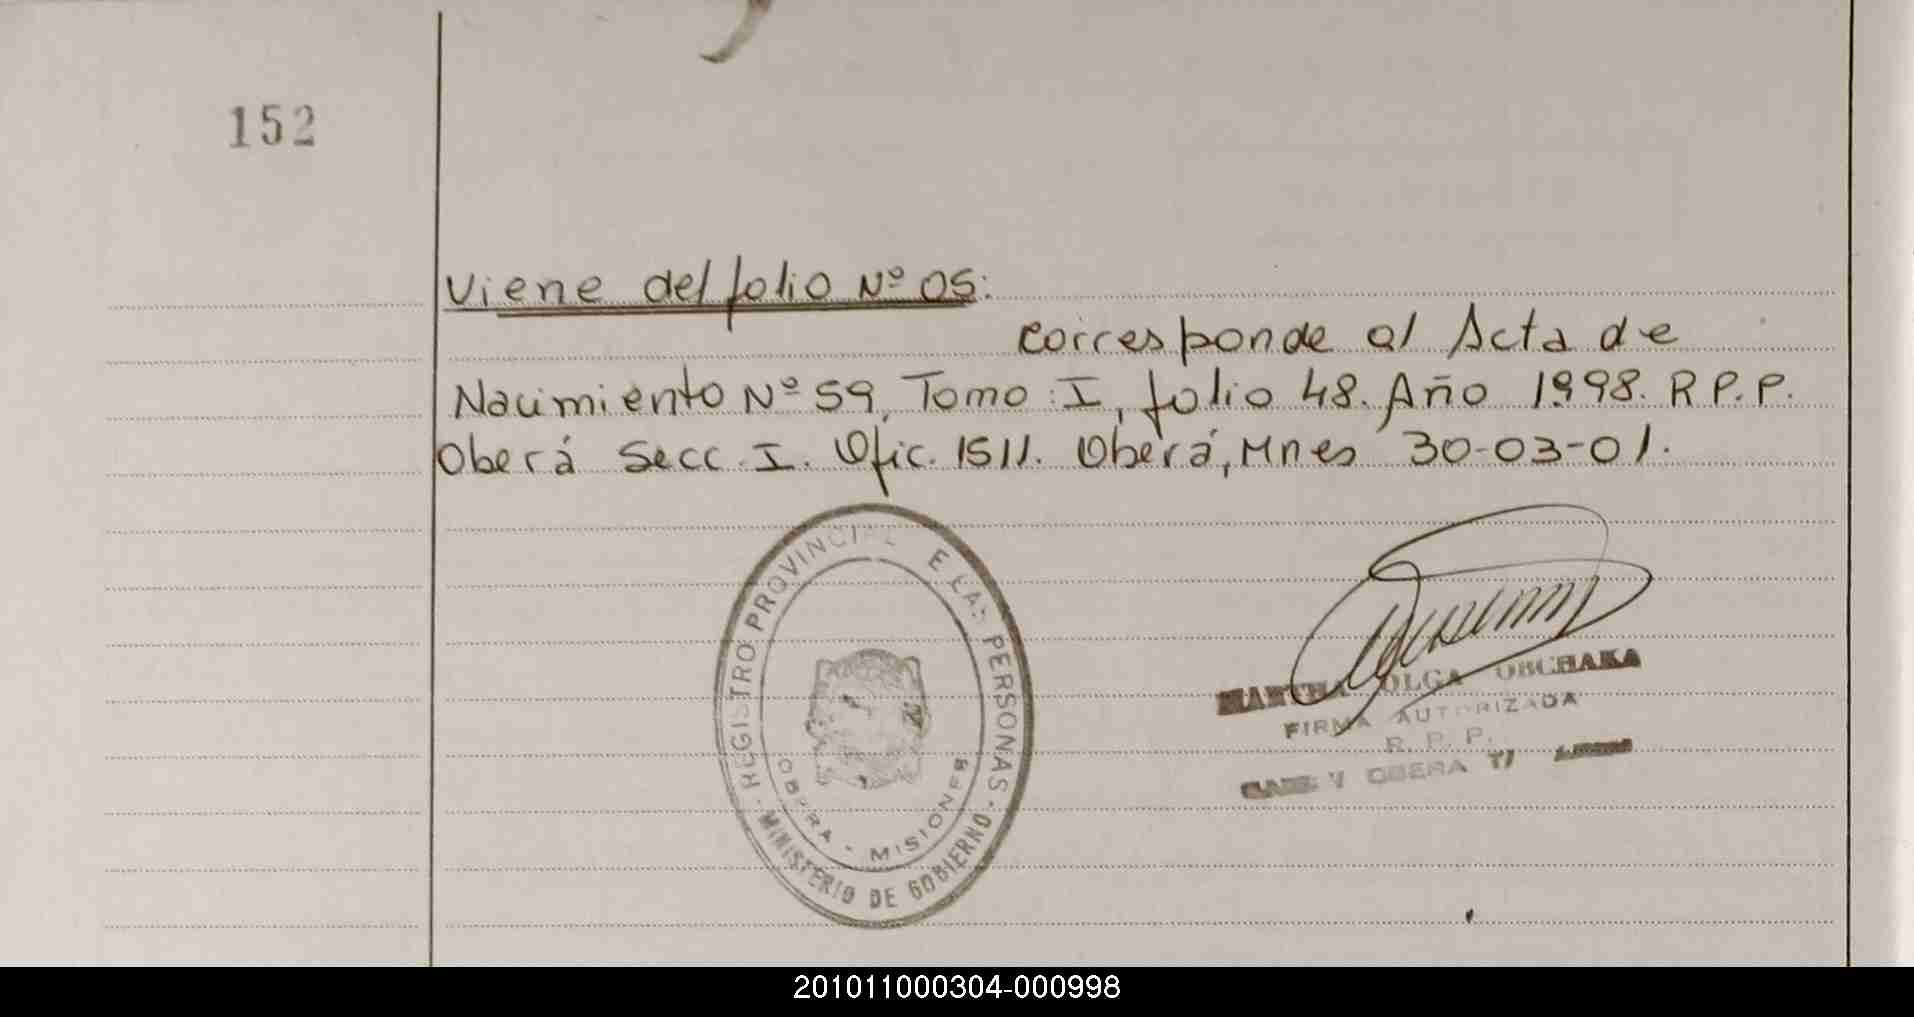 152
Viene del folio Nº 05:
corresponde al Acta de
Nacimiento Nº 59, Tomo: I, folio 48. Año 1998. R.P.P.
Oberá Secc. I. Ofic. 1511. Oberá, Mnes 30-03-01.
REGISTRO PROVINCIAL E LAS PERSONAS
OBERA - MISIONES
MINISTERIO DE GOBIERNO
MARTHA OLGA OBCHAKA
FIRMA AUTORIZADA
R. P. P.
OBERA
201011000304-000998